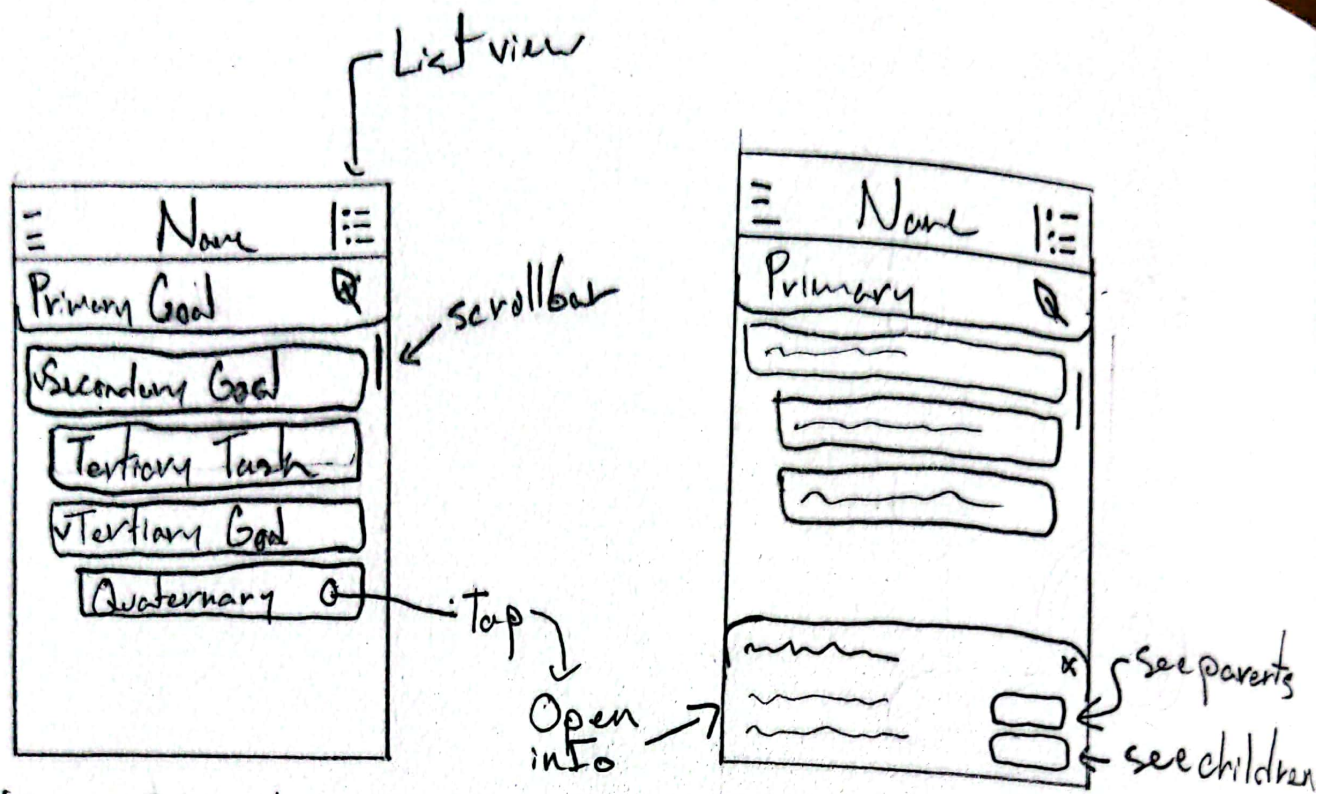 List view
Name
Primary Goal
scrollbar
Secondary Goal
Tertiary Task
Tertiary Goal
Quaternary
Tap
Open
info
Name
Primary
x
see parents
see children